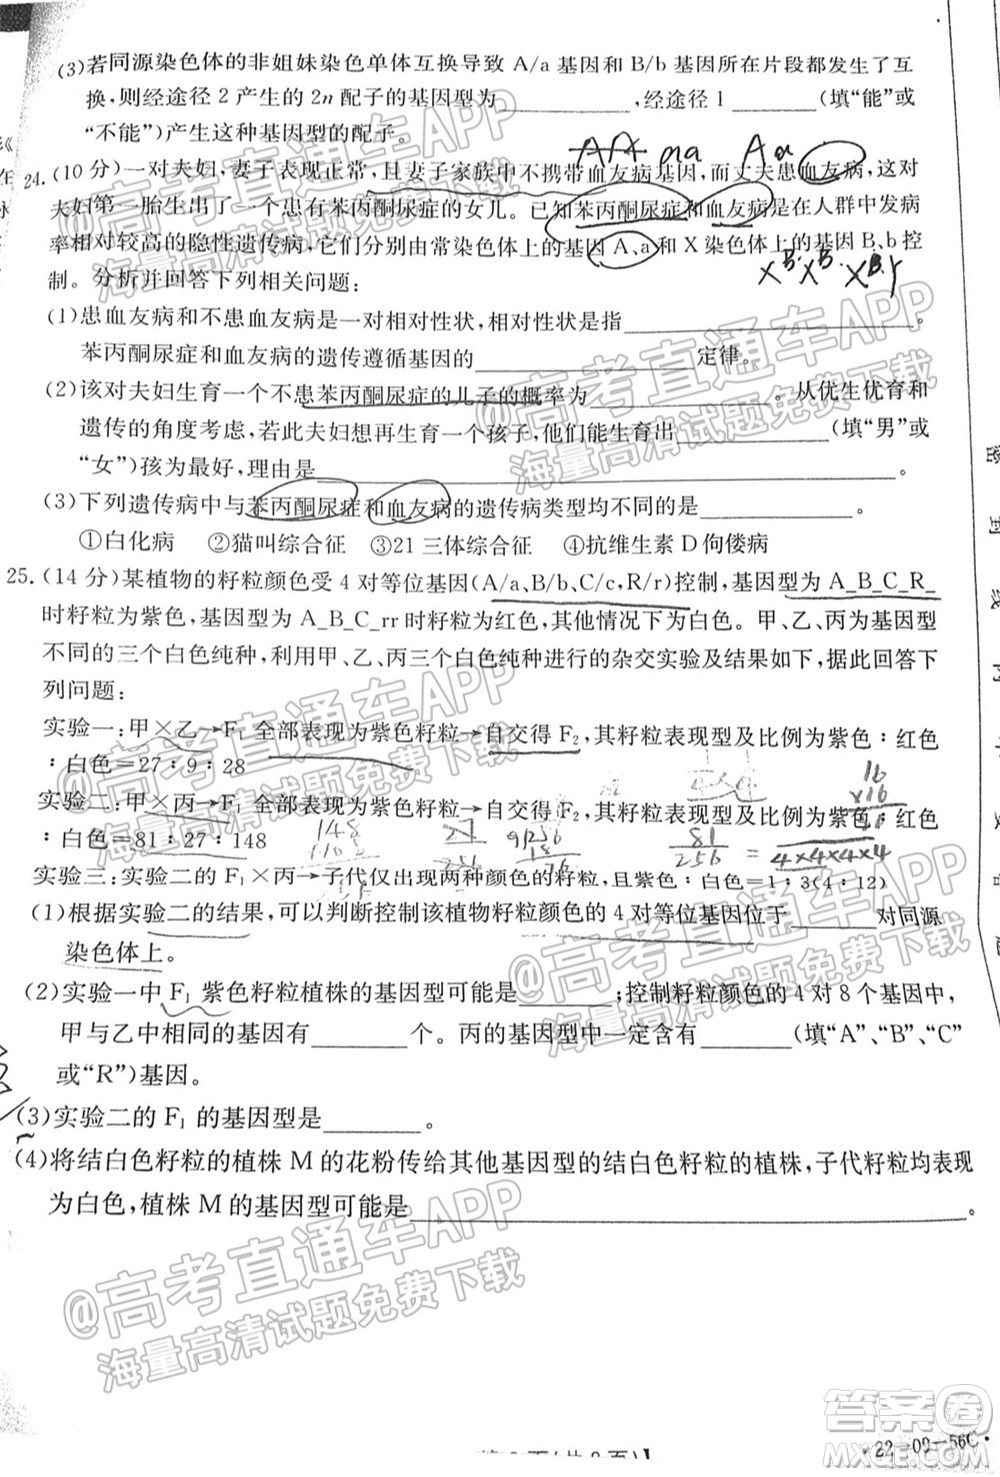 (3)若同源染色体的非姐妹染色单体互换导致 A/a 基因和 B/b 基因所在片段都发生了互
换,则经途径 2 产生的 2n 配子的基因型为________,经途径 1________(填“能”或
“不能”)产生这种基因型的配子。
AA aa Aa
24.(10 分)一对夫妇,妻子表现正常,且妻子家族中不携带血友病基因,而丈夫患血友病,这对
夫妇第一胎生出了一个患有苯丙酮尿症的女儿。已知苯丙酮尿症和血友病是在人群中发病
率相对较高的隐性遗传病,它们分别由常染色体上的基因 A、a 和 X 染色体上的基因 B、b 控
制。分析并回答下列相关问题:
(1)患血友病和不患血友病是一对相对性状,相对性状是指________。
苯丙酮尿症和血友病的遗传遵循基因的________定律。
(2)该对夫妇生育一个不患苯丙酮尿症的儿子的概率为________。从优生优育和
遗传的角度考虑,若此夫妇想再生育一个孩子,他们能生育________(填“男”或
“女”)孩为最好,理由是________。
(3)下列遗传病中与苯丙酮尿症和血友病的遗传病类型均不同的是________。
①白化病 ②猫叫综合征 ③21 三体综合征 ④抗维生素 D 佝偻病
25.(14 分)某植物的籽粒颜色受 4 对等位基因(A/a、B/b、C/c、R/r)控制,基因型为 A_B_C_R_
时籽粒为紫色,基因型为 A_B_C_rr 时籽粒为红色,其他情况下为白色。甲、乙、丙为基因型
不同的三个白色纯种,利用甲、乙、丙三个白色纯种进行的杂交实验及结果如下,据此回答下
列问题:
实验一:甲×乙→F₁ 全部表现为紫色籽粒→自交得 F₂,其籽粒表现型及比例为紫色:红色
:白色=27:9:28
实验二:甲×丙→F₁ 全部表现为紫色籽粒→自交得 F₂,其籽粒表现型及比例为紫色:红色
:白色=81:27:148
81/256 = 4×4×4×4
实验三:实验二的 F₁×丙→子代仅出现两种颜色的籽粒,且紫色:白色=1:3(4:12)
(1)根据实验二的结果,可以判断控制该植物籽粒颜色的 4 对等位基因位于________对同源
染色体上。
(2)实验一中 F₁ 紫色籽粒植株的基因型可能是________;控制籽粒颜色的 4 对 8 个基因中,
甲与乙中相同的基因有________个。丙的基因型中一定含有________(填“A”、“B”、“C”
或“R”)基因。
(3)实验二的 F₁ 的基因型是________。
(4)将结白色籽粒的植株 M 的花粉传给其他基因型的结白色籽粒的植株,子代籽粒均表现
为白色,植株 M 的基因型可能是________。
@高考直通车APP
海量高清试题免费下载
密
封
线
答案圈
MXQE.COM
·22-09-56C·